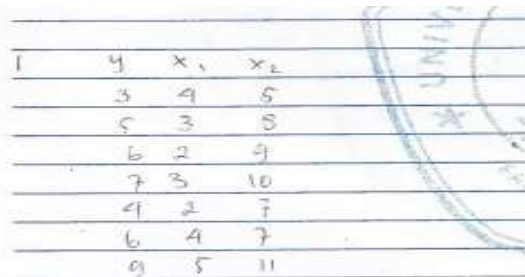 1 y x₁ x₂
3 4 5
5 3 8
6 2 9
7 3 10
4 2 7
6 4 7
9 5 11